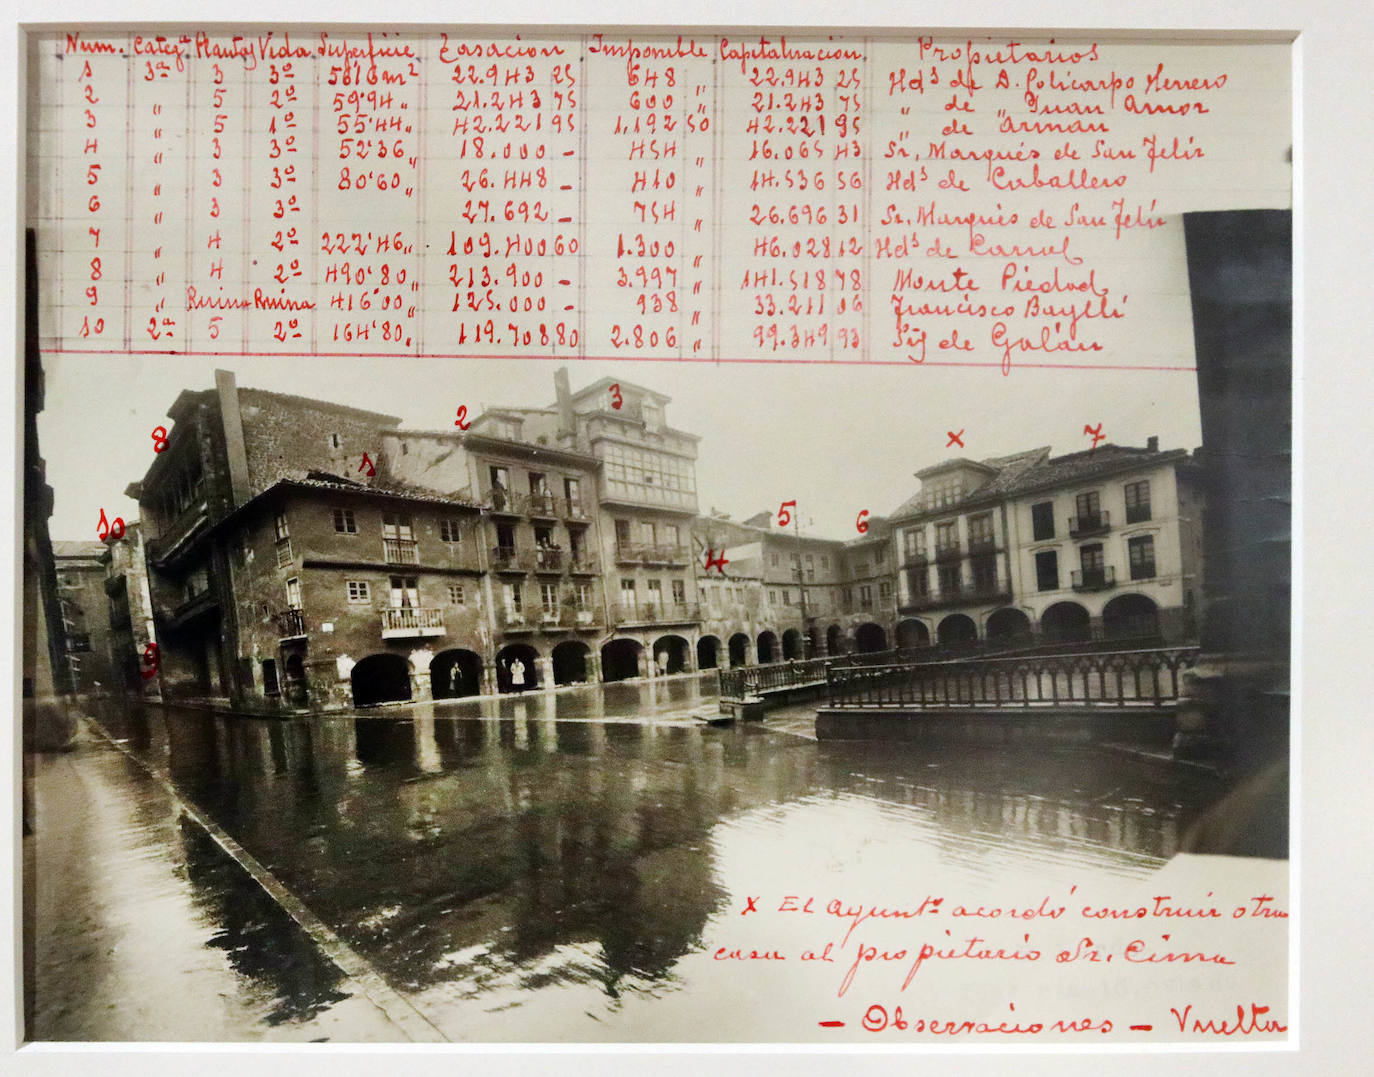 Num. Categª Plantas Vida Superficie Tasacion Imponible Capitalización Propietarios
1 3ª 3 3º 56'16 m² 22.943 25 648 „ 22.943 25 Hdˢ de D. Policarpo Herrero
2 „ 5 2º 59'94 „ 21.243 75 600 „ 21.243 75 „ de „ Juan Amor
3 „ 5 1º 55'44 „ 42.221 95 1.192 50 42.221 95 „ de Arnau
4 „ 3 3º 52'36 „ 18.000 - 454 „ 16.065 43 Sr. Marqués de San Feliz
5 „ 3 3º 80'60 „ 26.448 - 410 „ 14.536 56 Hdˢ de Caballero
6 „ 3 3º 27.692 - 754 „ 26.696 31 Sr. Marqués de San Feliz
7 „ 4 2º 222'46 „ 109.400 60 1.300 „ 46.028 12 Hdˢ de Corral
8 „ 4 2º 490'80 „ 213.900 - 3.997 „ 141.518 78 Monte Piedad
9 „ Ruina Ruina 416'00 „ 125.000 - 938 „ 33.211 06 Francisco Baylli
10 2ª 5 2º 164'80 „ 119.708 80 2.806 „ 99.349 93 de Galán
3
2
8
1
x
7
10
5
6
4
9
x El Ayuntº acordó construir otra
casa al propietario Sr. Cima
- Observaciones - Vuelta